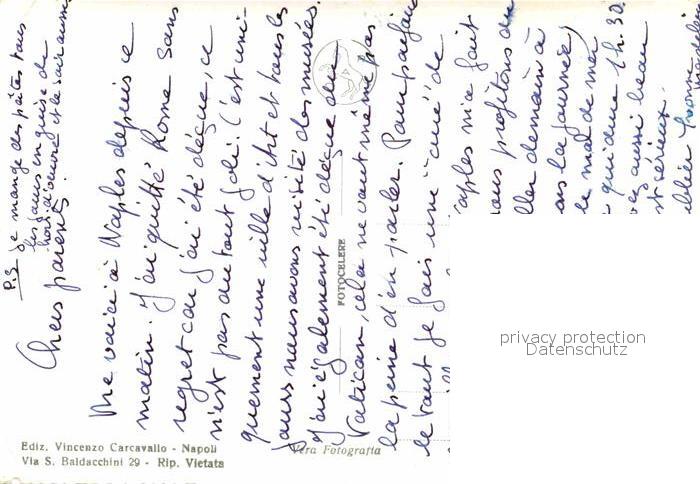 P.S Je mange des pâtes tous
les jours en guise de
hors d'œuvre et le soir aussi
Chers parents.
Me voici à Naples depuis ce
matin. J'ai quitté Rome sans
regret car j'ai été déçue, ce
n'est pas du tout joli. C'est uni-
quement une ville d'Art et tous les
jours nous avons visité des musées.
J'ai également été déçue du
Vatican, cela ne vaut même pas
la peine d'en parler. Pour parfaire
le tout je fais une "cure" de
Naples m'a fait
nous profitons du
aller demain à
la journée)
le mal de mer
qui dure 1h.30.
aussi beau
sérieux.
oublier
FOTOCELERE
Ediz. Vincenzo Carcavallo - Napoli
Via S. Baldacchini 29 - Rip. Vietata
Vera Fotografia
privacy protection
Datenschutz